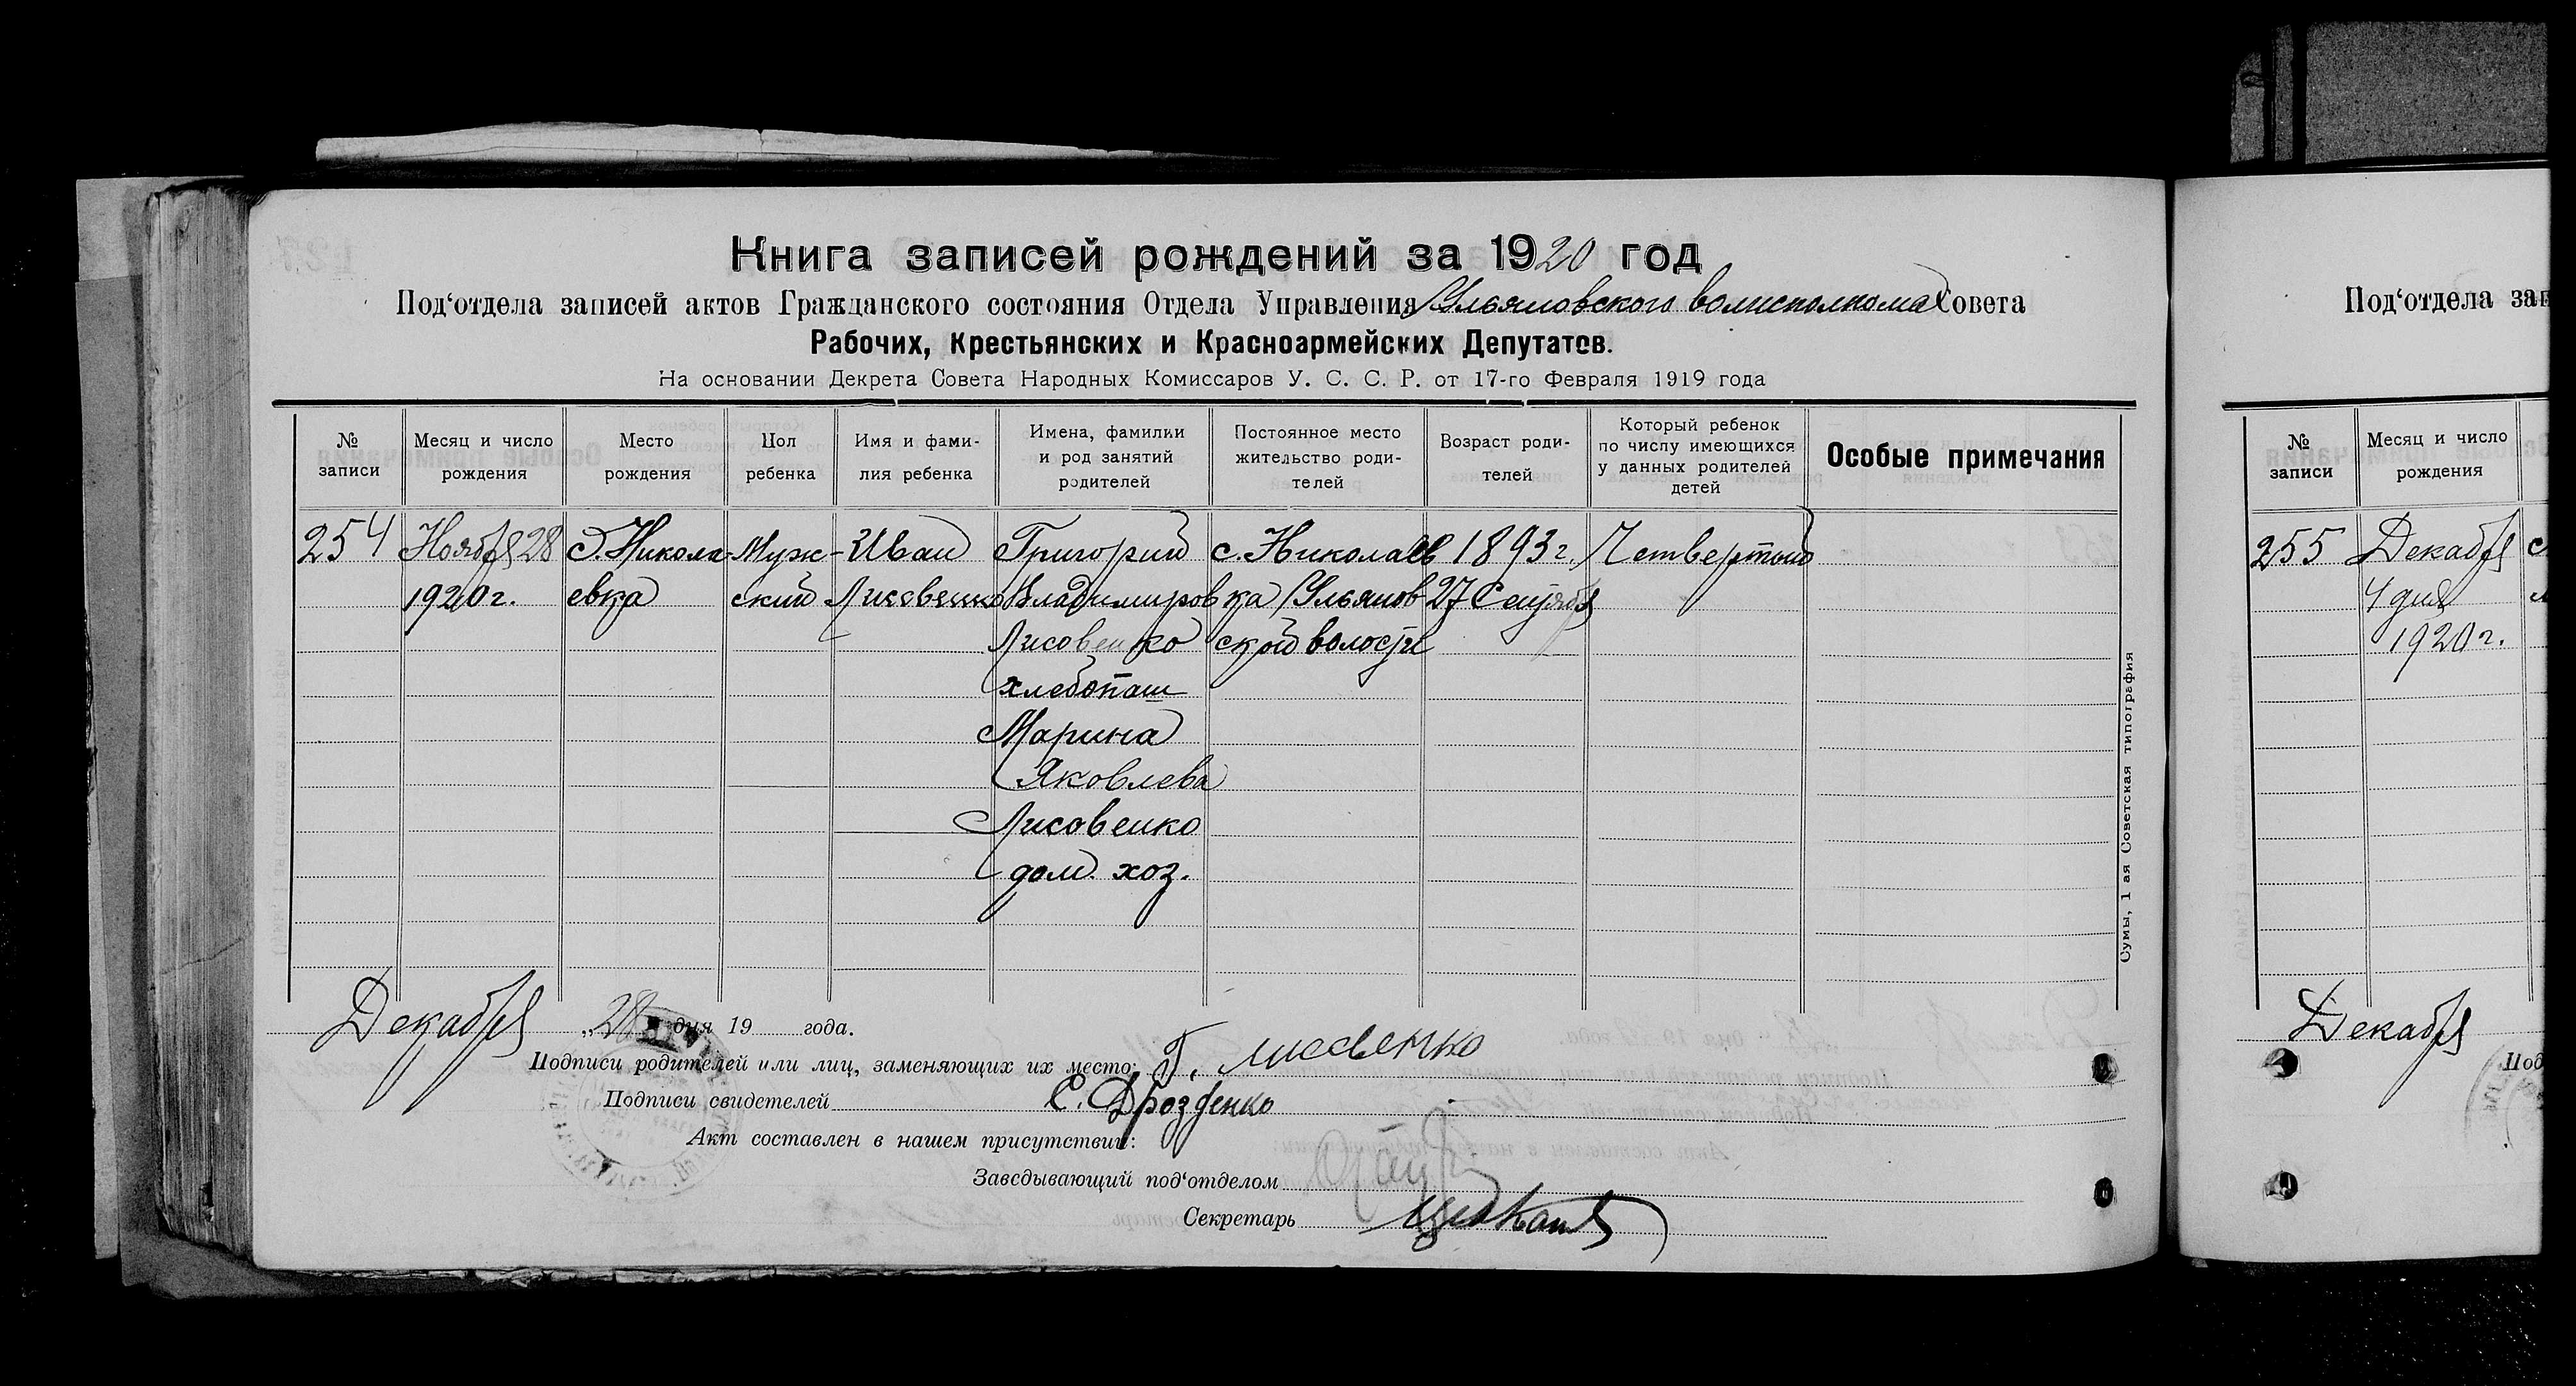 Книга записей рождений за 1920 год
Под‘отдела записей актов Гражданского состояния Отдела Управления Ульяновского волисполкома Совета
Рабочих, Крестьянских и Красноармейских Депутатов.
На основании Декрета Совета Народных Комиссаров У. С. С. Р. от 17-го Февраля 1919 года
№ записи
Месяц и число рождения
Место рождения
Пол ребенка
Имя и фами-
лия ребенка
Имена, фамилии
и род занятий
родителей
Постоянное место
жительство роди-
телей
Возраст роди-
телей
Который ребенок
по числу имеющихся
у данных родителей
детей
Особые примечания
254
Ноября 28
1920 г.
С. Никола-
евка
Муж-
ский
Иван
Лисовенко
Григорий
Владимиров
Лисовенко
хлебопаш
Марина
Яковлева
Лисовенко
дом. хоз.
с. Николаев
ка Ульянов
ской волости
1893 г.
27 Сентября
Четвертый
Декабря 28 дня 19 года.
Подписи родителей или лиц, заменяющих их место: Г. Лисовенко
Подписи свидетелей С. Дрозденко
Акт составлен в нашем присутствии:
Заведывающий под‘отделом
Секретарь
Сумы, 1 ая Советская типография
Под‘отдела зап
№ записи
Месяц и число рождения
255
Декабря
4 дня
1920 г.
Декабря
Под